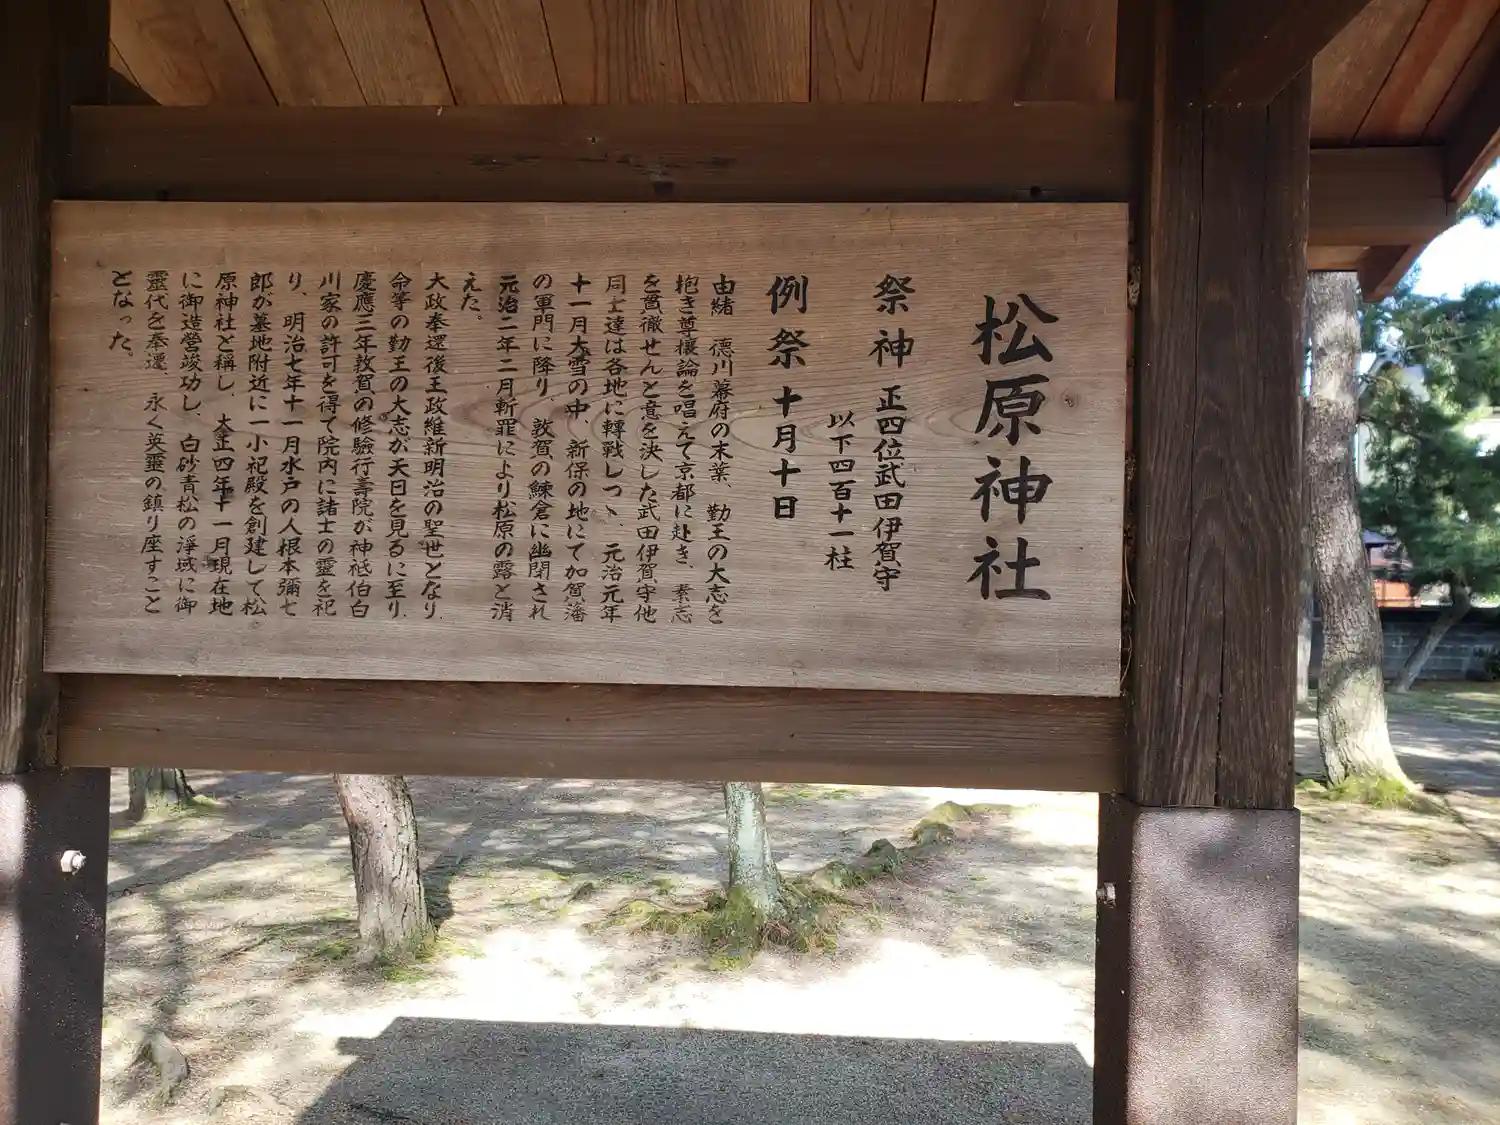 松原神社
祭神 正四位武田伊賀守
以下四百十一柱
例祭 十月十日
由緒 德川幕府の末葉、勤王の大志を
抱き尊攘論を唱えて京都に赴き、素志
を貫徹せんと意を決した武田伊賀守他
同士達は各地に轉戰しつゝ、元治元年
十一月大雪の中、新保の地にて加賀藩
の軍門に降り、敦賀の鰊倉に幽閉され
元治二年二月斬罪により松原の露と消
えた。
大政奉還後王政維新明治の聖世となり
命等の勤王の大志が天日を見るに至り
慶應三年敦賀の修驗行壽院が神祗伯白
川家の許可を得て院内に諸士の靈を祀
り、明治七年十一月水戸の人根本彌七
郎が墓地附近に一小祀殿を創建して松
原神社と稱し、大正四年十一月現在地
に御造營竣功し、白砂青松の淨域に御
靈代を奉遷、永く英靈の鎮り座すこと
となった。